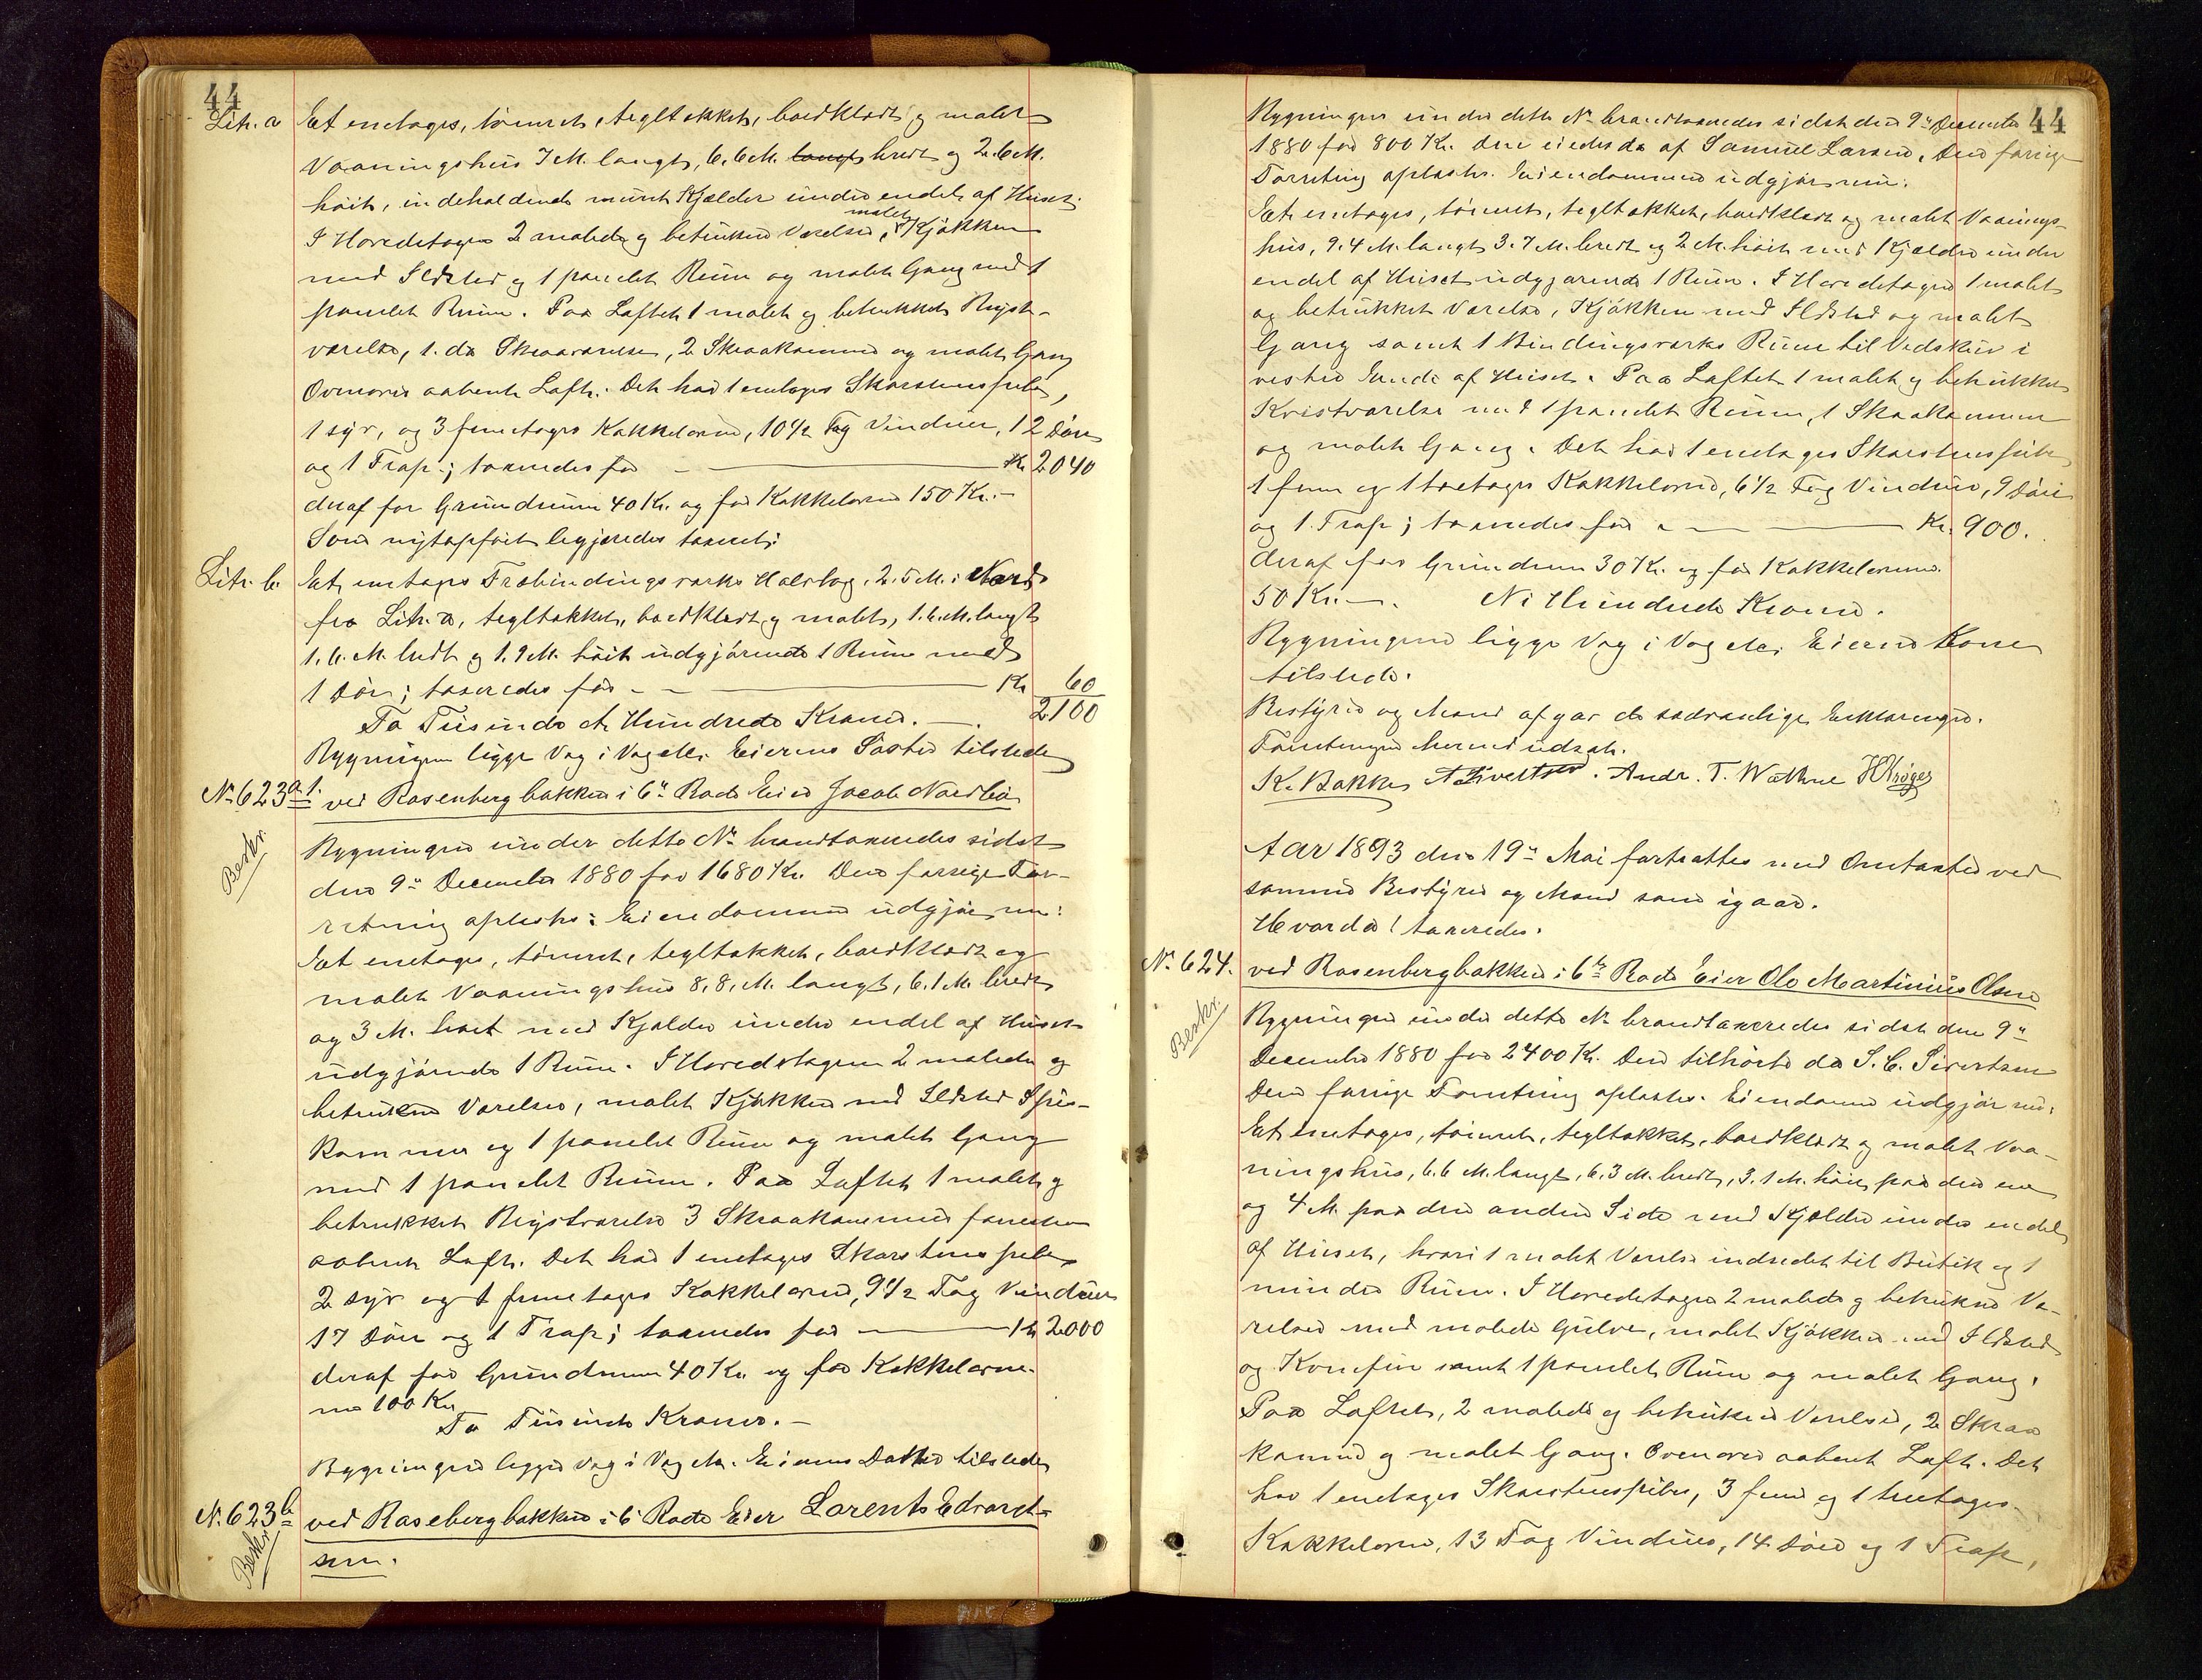 44
Litr. a Et enetages, tømret, tegltækket, bordklædt og malet
Vaaningshus 7 M. langt, 6.6 M. langt bredt og 2.6 M.
høit, indeholdende muret Kjælder under endel af Huset.
I Hovedetagen 2 malede og betrukne Værelser, malet Kjøkken
med Ildsted og 1 panelet Rum og malet Gang med 1
panelet Rum. Paa Loftet 1 malet og betrukket Kvist-
værelse, 1 do Skraaværelse, 2 Skraakammer og malet Gang
Ovenover aabent Loft. Det har 1 enetages Skorstenspibe,
1 syv, og 3 fem etages Kakkelovne, 10 1/2 Fag Vinduer, 12 Døre
og 1 Trap.; taxeredes for — Kr 2040
deraf for Grundmur 40 Kr. og for Kakkelovne 150 Kr. —
Som nyt opført begjæredes taxeret:
Litr. b. Et enetages Træbindingsværks 2.5 M. i Nord
fra Litr. a, tegltækket, bordklædt og malet, 1.6. M. langt
1.6. M. bredt og 1.9 M. høit udgjørende 1 Rum med
1 Dør; taxeredes for — Kr 60
2100
To Tusinde et Hundrede Kroner. —
Bygningen ligge Væg i Væg &c. Eierens Søster tilstede
No 623 a.1. ved Rosenbergbakken i 6te Rode Eier Jacob Nordbø
Beskr.
Bygningen under dette No brandtaxeredes sidst
den 9de December 1880 for 1680 Kr. Den forrige For-
retning oplæstes: Eiendommen udgjør nu:
Et enetages, tømret, tegltækket, bordklædt og
malet Vaaningshus 8.8. M. langt, 6.1 M. bredt
og 3 M. høit med Kjælder under endel af Huset
udgjørende 1 Rum. I Hovedetagen 2 malede og
betrukne Værelser, malet Kjøkken med Ildsted Spis-
kammer og 1 panelet Rum og malet Gang
med 1 panelet Rum. Paa Loftet 1 malet og
betrukket Kvistværelse 3 Skraakammer foruden
aabent Loft. Det har 1 enetages Skorstenspibe
2 syv og 1 fem etages Kakkelovne, 9 1/2 Fag Vinduer
17 Døre og 1 Trap; taxeredes for — Kr 2000
deraf for Grundmur 40 Kr. og for Kakkelovne-
ne 100 Kr.
To Tusinde Kroner. —
Bygningen ligger Væg i Væg &c. Eierens Datter tilstede
No. 623 b ved Rosebergbakken i 6 Rode Eier Lorents Edvard-
Beskr.
sen.
44
Bygningen under dette No brandtaxeredes sidst den 9de December
1880 for 800 Kr. den eiedes da af Samuel Larsen. Den forrige
Forretning oplæstes. Eiendommen udgjør nu:
Et enetages, tømret, tegltækket, bordklædt og malet Vaanings-
hus, 9.4 M. langt 3.7 M. bredt og 2 M. høit med Kjælder under
endel af Huset udgjørende 1 Rum. I Hovedetagen 1 malet
og betrukket Værelse, Kjøkken med Ildsted og malet
Gang samt 1 Bindingsværks Rum til Vedskur i
vestre Ende af Huset. Paa Loftet 1 malet og betrukket
Kvistværelse med 1 panelet Rum, 1 Skraakammer
og malet Gang. Det har 1 enetages Skorstenspibe
1 fem og 1 toetages Kakkelovne, 6 1/2 Fag Vinduer, 9 Døre
og 1 Trap; taxeredes for — Kr. 900.
deraf for Grundmur 30 Kr. og for Kakkelovnene
50 Kr. —. Ni Hundrede Kroner.
Bygningerne ligge Væg i Væg &c. Eierens Kone
tilstede.
Bestyrer og Mænd afgav de sædvanlige Erklæringer.
Forretningen herved udsat.
K. Bakke A Sivertsen. Andr. T. Wathne H Krøger
Aar 1893 den 19de Mai fortsattes med Omtaxten ved
samme Bestyrer og Mænd som igaar.
Hvorda! taxeredes.
No. 624. ved Rosenbergbakken i 6te Rode Eier Ole Martinius Olsen
Beskr.
Bygningen under dette No brandtaxeredes sidst den 9de
December 1880 for 2400 Kr. Den tilhørte da S. C. Sivertsen
Den forrige Forretning oplæstes. Eiendommen udgjør nu:
Et enetages, tømret, tegltækket, bordklædt og malet Vaa-
ningshus, 6.6 M. langt, 6.3 M. bredt, 3.1 M. høit paa den ene
og 4 M. paa den anden Side med Kjælder under endel
af Huset, hvori 1 malet Værelse indredet til Butik og 1
mindre Rum. I Hovedetagen 2 malede og betrukne Væ-
relser med malede Gulve, malet Kjøkken med Ildsted
og Komfur samt 1 panelet Rum og malet Gang.
Paa Loftet, 2 malede og betrukne Værelser, 2 Skraa
kammer og malet Gang. Ovenover aabent Loft. Det
har 1 enetages Skorstenspibe, 3 fem og 1 treetages
Kakkelovne, 13 Fag Vinduer, 14 Døre og 1 Trap,